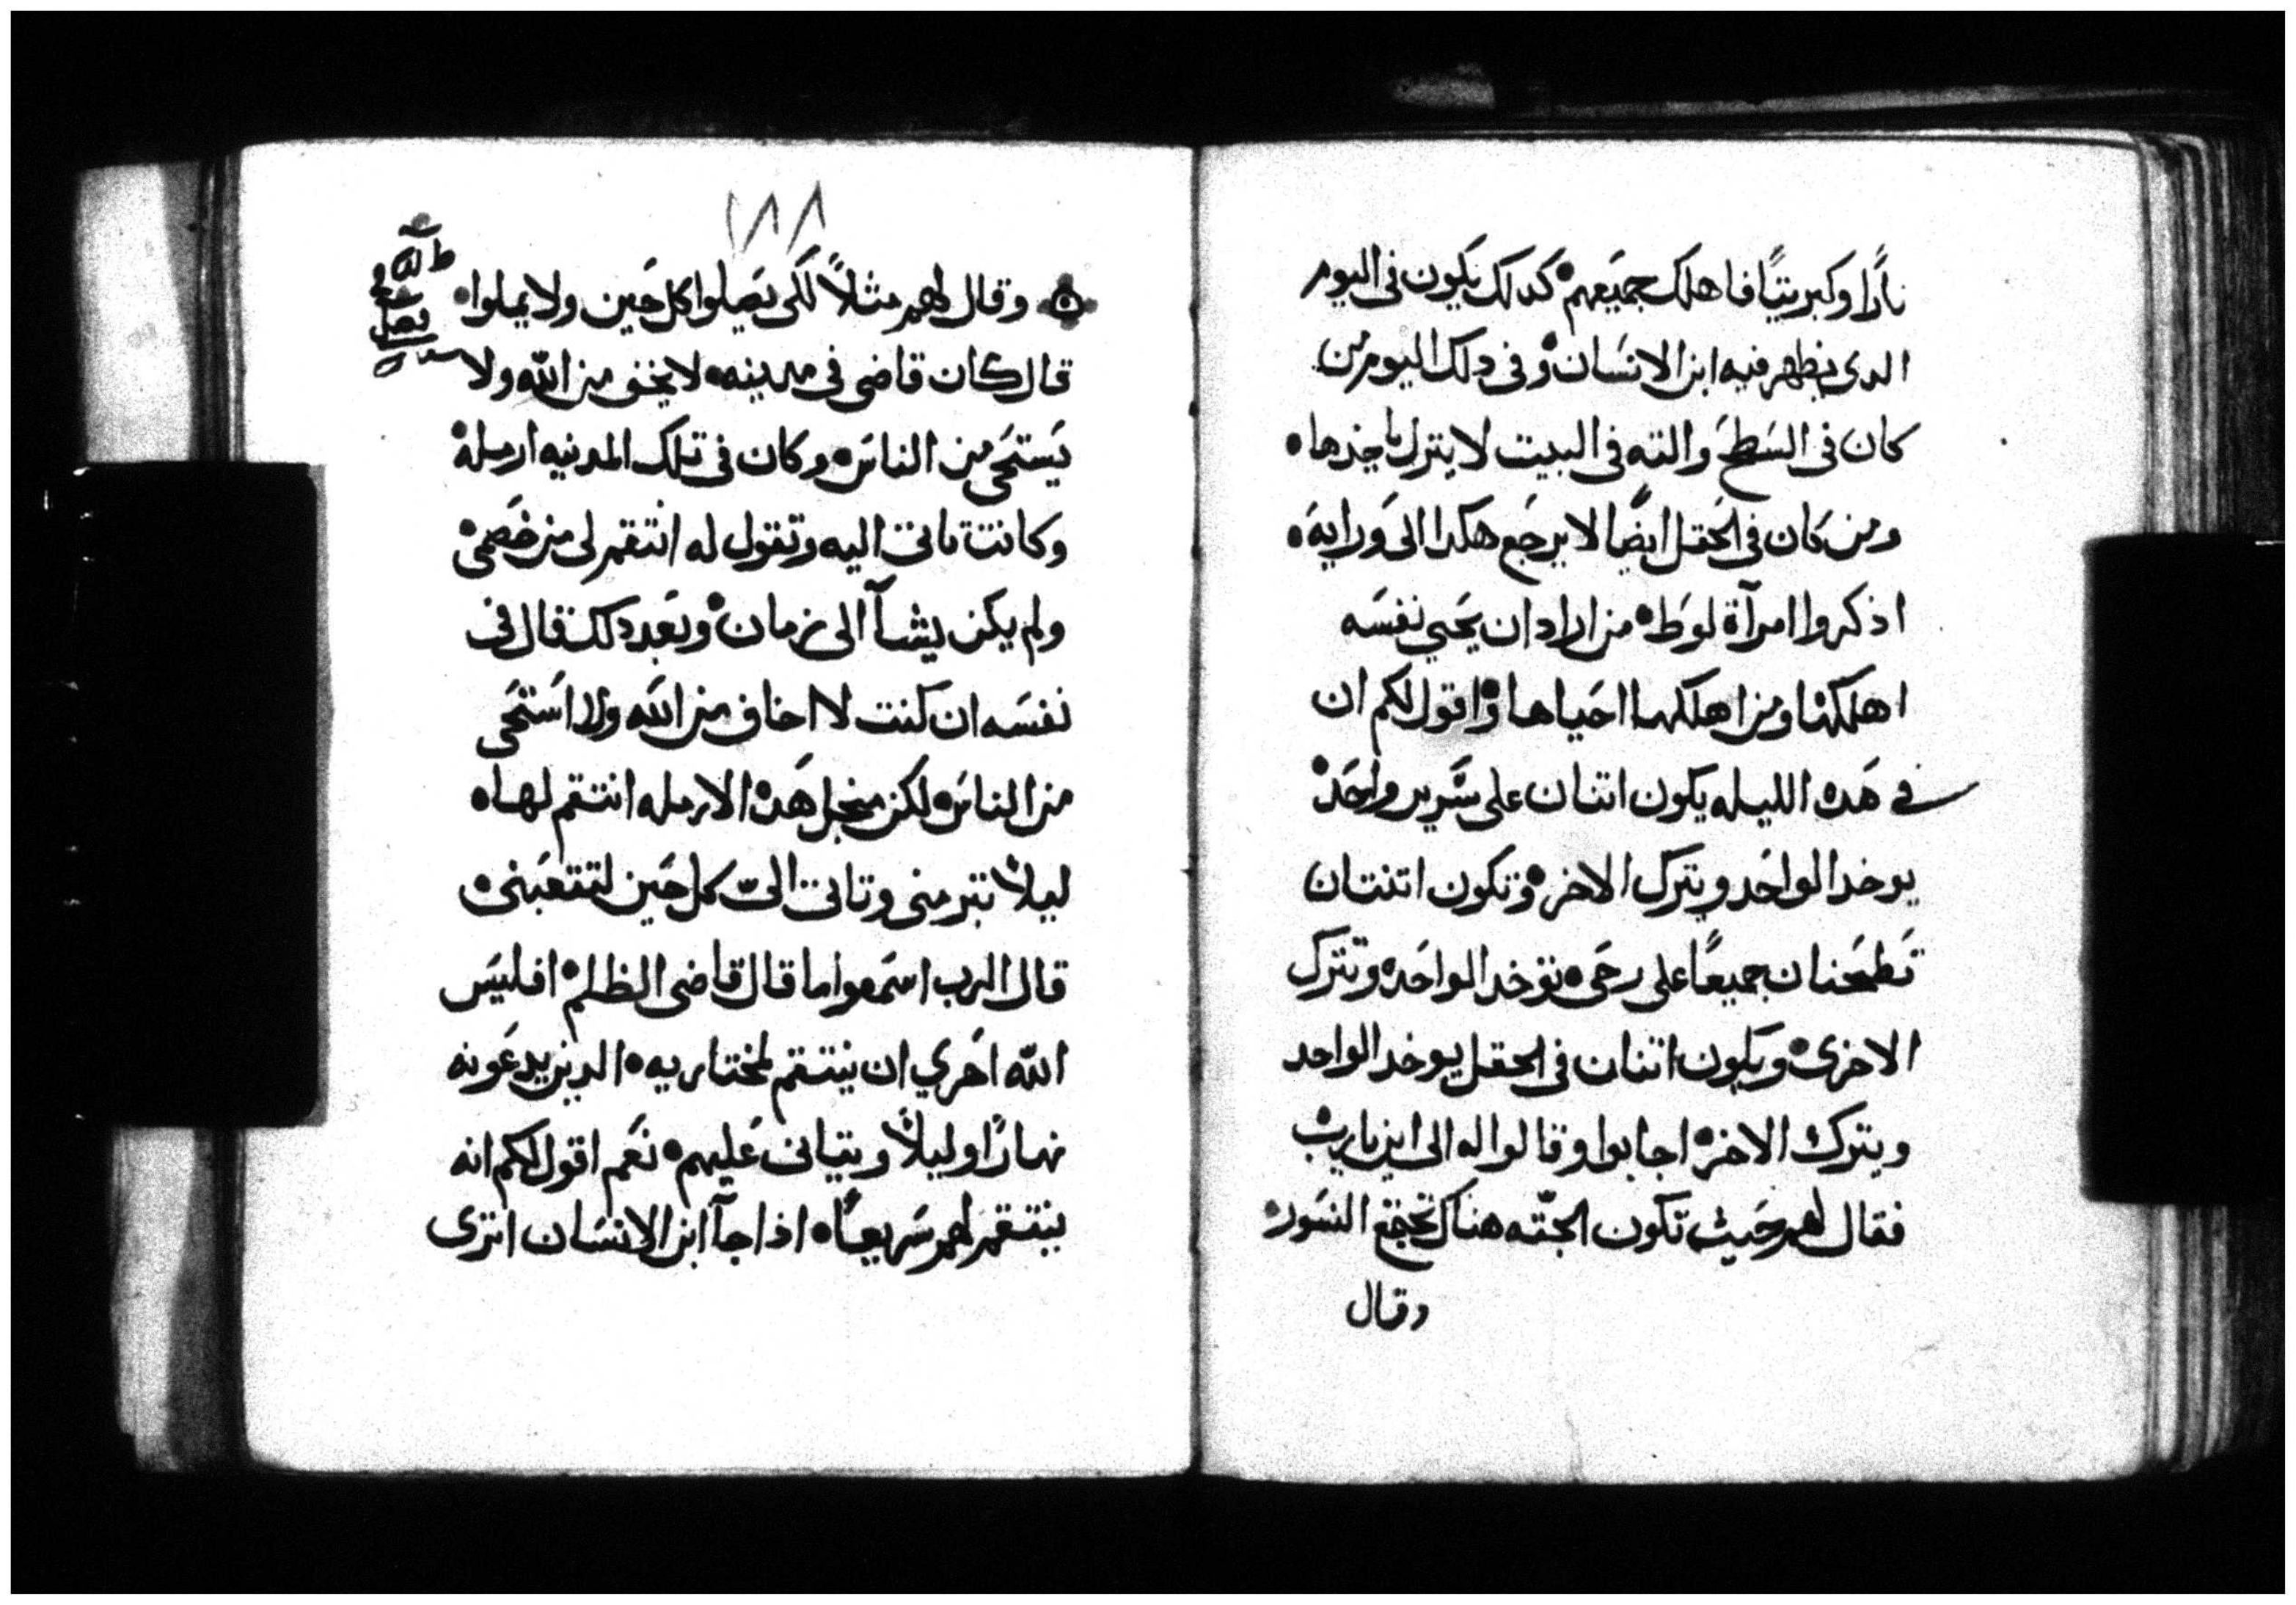 نارًا وكبريتًا فاهلك جميعهم كدلك يكون فى اليوم
الدى يظهر فيه ابن الانسان وفى دلك اليوم من
كان فى السطح والته فى البيت لا ينزل ياخدها
ومن كان فى الحقل ايضًا لا يرجع هكدا الى ورايه
اذكروا امرآة لوط من اراد ان يحيي نفسه
اهلكها ومن اهلكها احياها واقول لكم ان
فى هده الليله يكون اتنان على سرير واحد
يوخد الواحد ويترك الاخر وتكون اتنتان
تطحنان جميعًا على رحى توخد الواحده وتترك
الاخرى ويكون اتنان فى الحقل يوخد الواحد
ويترك الاخر اجابوا وقالوا له الى اين يارب
فقال لهم حيث تكون الجته هناك تجتمع النسور
وقال
١٨٨
وقال لهم مثلاً لكى يصلوا كل حين ولا يملوا
قال كان قاضى فى مدينه لا يخف من الله ولا
يستحى من الناس وكان فى تلك المدينه ارمله
وكانت تاتى اليه وتقول له انتقم لى من خصمى
ولم يكن يشآ الى زمان وبعد دلك قال فى
نفسه ان كنت لا اخاف من الله ولا استحى
من الناس لكن منجل هده الارمله انتقم لها
ليلا تبرمنى وتاتى الىّ كل حين لتتعبنى
قال الرب اسمعوا ما قال قاضى الظلم افليس
الله احري ان ينتقم لمختاريه الدين يدعونه
نهارًا وليلاً ويتانى عليهم نعم اقول لكم انه
ينتقم لهم سريعًا اذا جآ ابن الانسان اترى